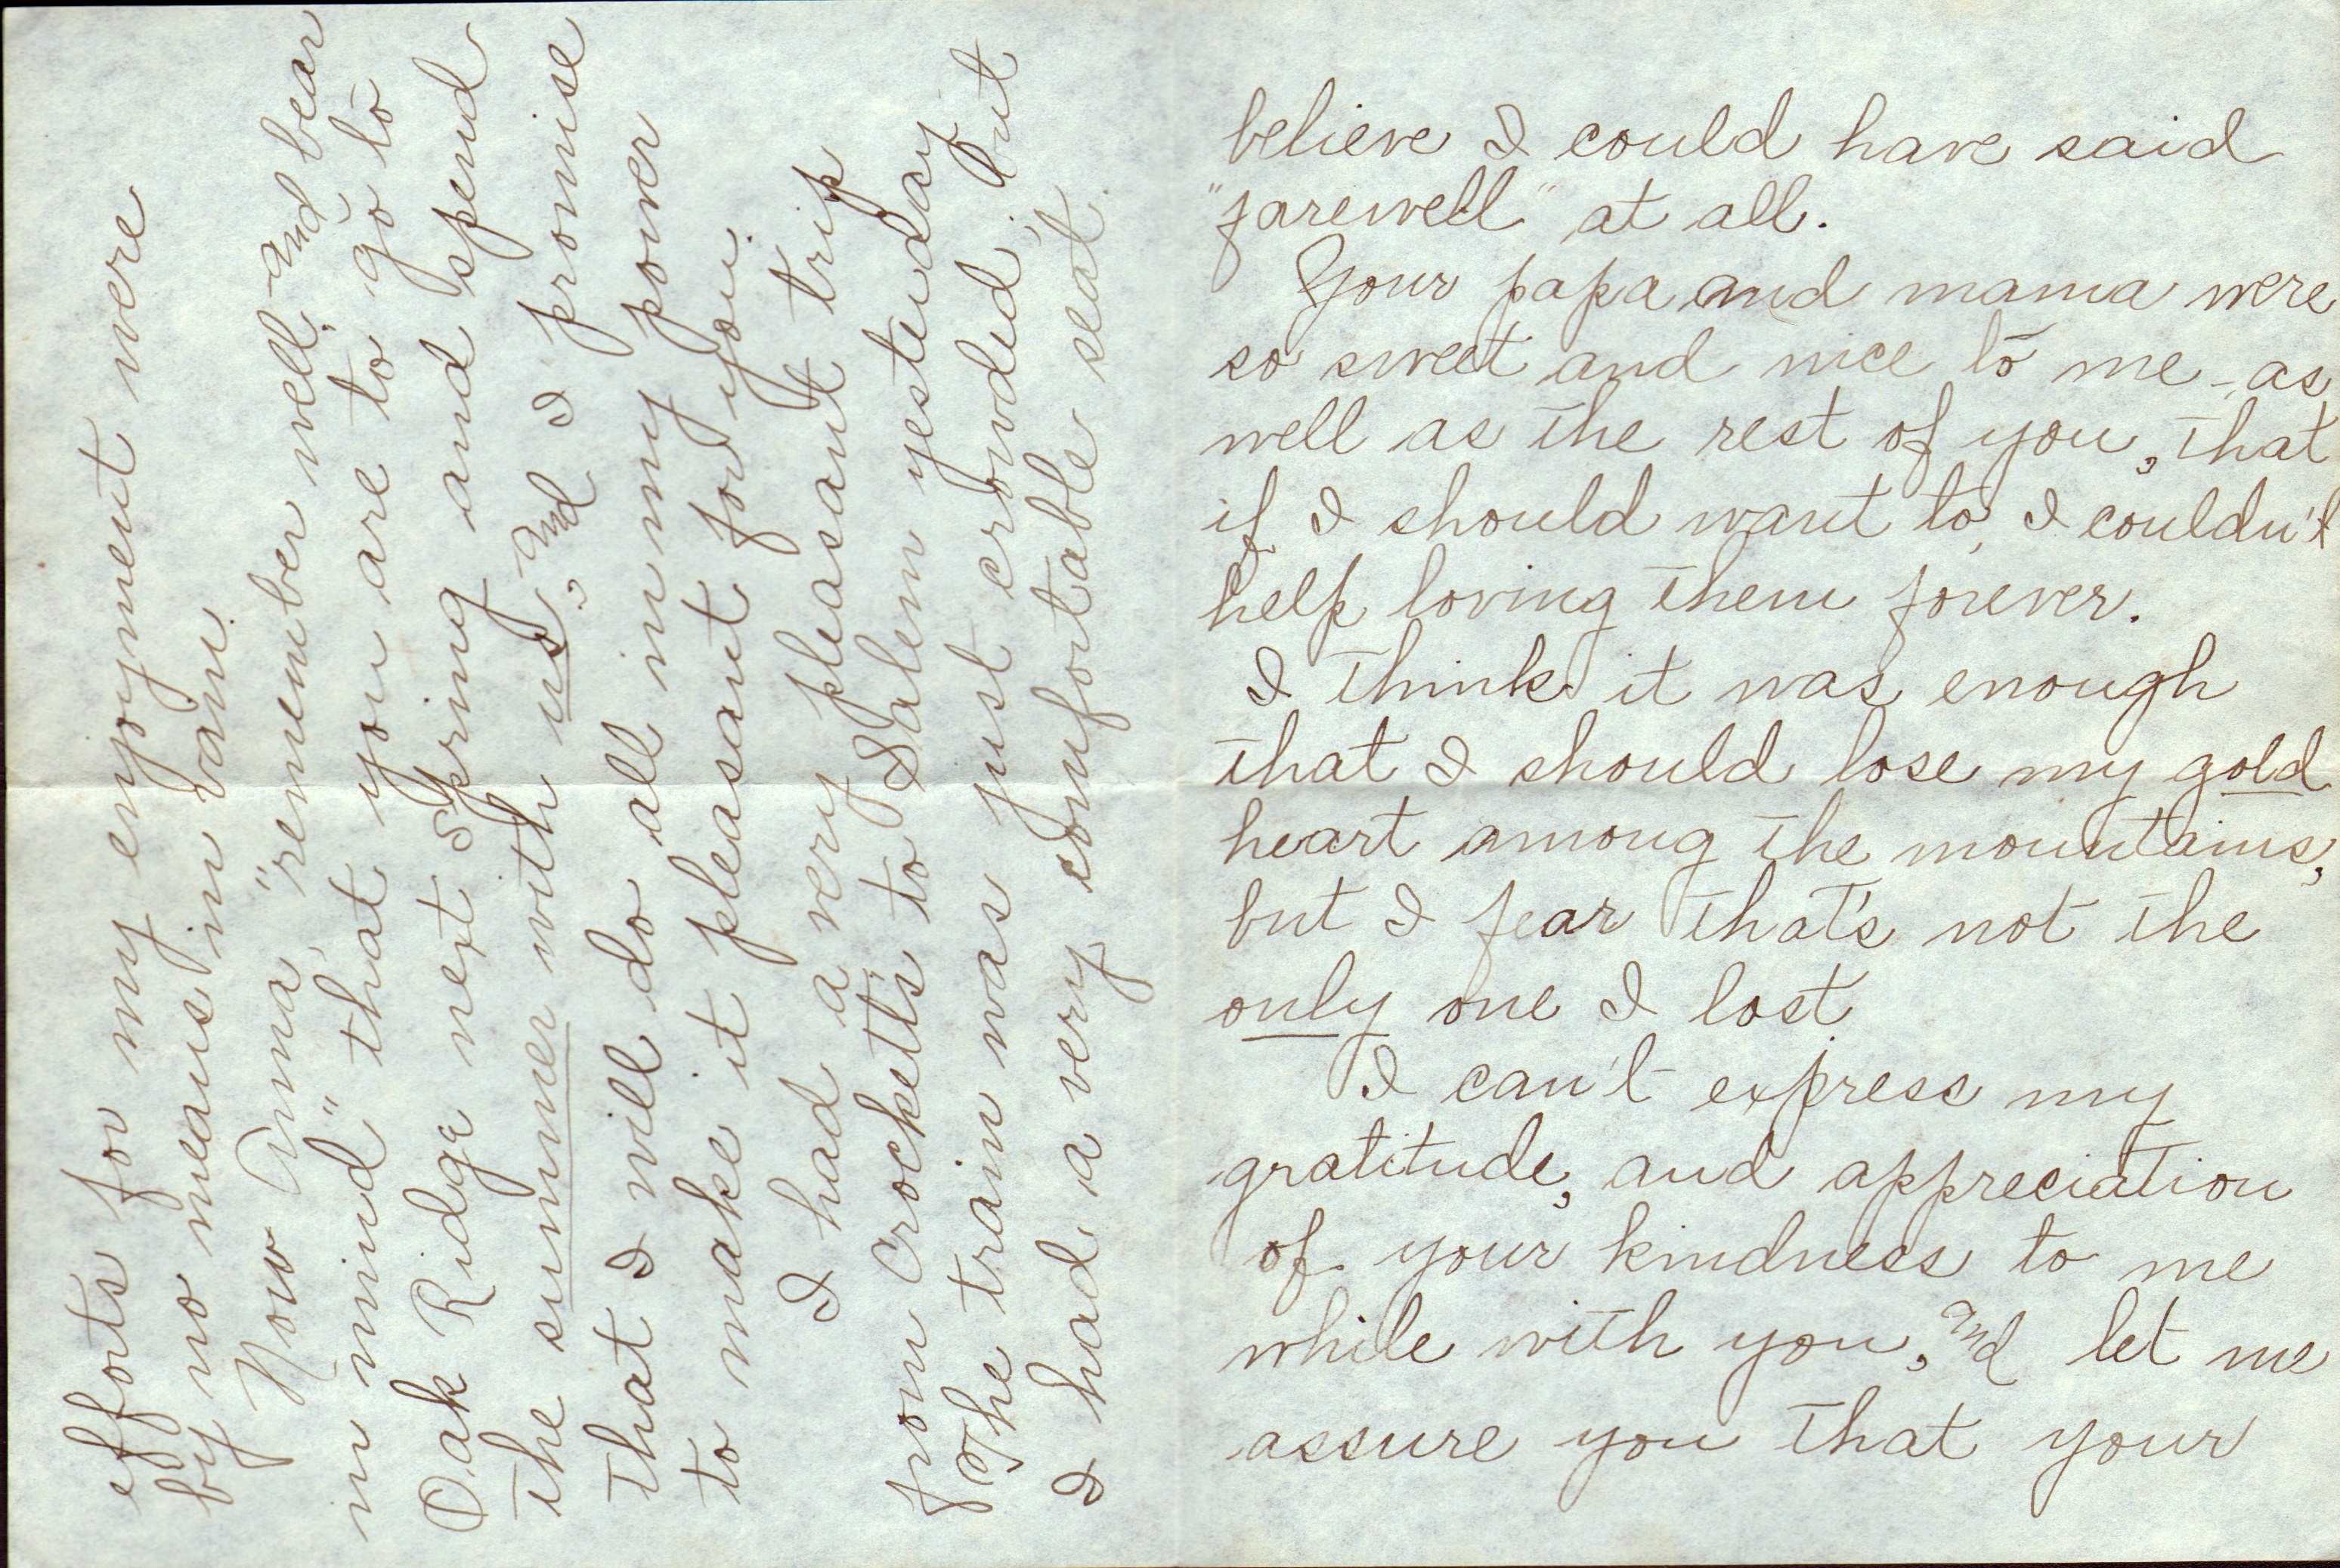 believe I could have said
"farewell" at all.
Your papa and mama were
so sweet and nice to me - as
well as the rest of you, that
if I should want to, I couldn't
help loving them forever.
I think it was enough
that I should lose my gold
heart among the mountains,
but I fear that's not the
only one I lost
I can't express my
gratitude, and appreciation
of your kindness to me
while with you, and let me
assure you that your
efforts for my enjoyment were
by no means in vain.
Now Anna, "remember well - and bear
in mind" that you are to go to
Oak Ridge next Spring and spend
the summer with us, and I promise
that I will do all in my power
to make it pleasant for you.
I had a very pleasant trip
from Crockett's to Salem yesterday.
The train was just crowded, but
I had a very comfortable seat.